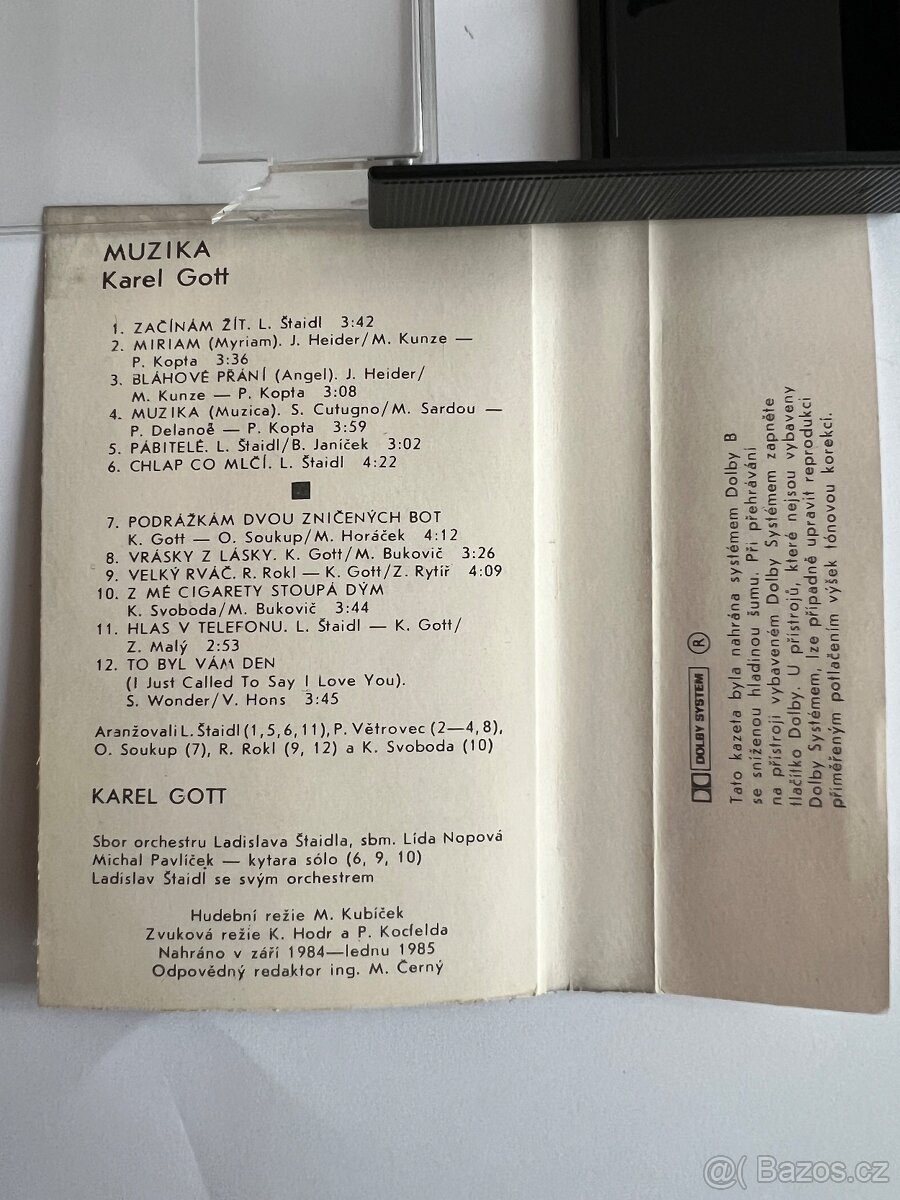 MUZIKA
Karel Gott
1. ZAČÍNÁM ŽÍT. L. Štaidl 3:42
2. MIRIAM (Myriam). J. Heider/M. Kunze —
P. Kopta 3:36
3. BLÁHOVÉ PŘÁNÍ (Angel). J. Heider/
M. Kunze — P. Kopta 3:08
4. MUZIKA (Muzica). S. Cutugno/M. Sardou —
P. Delanoë — P. Kopta 3:59
5. PÁBITELÉ. L. Štaidl/B. Janíček 3:02
6. CHLAP CO MLČÍ. L. Štaidl 4:22
7. PODRÁŽKÁM DVOU ZNIČENÝCH BOT
K. Gott — O. Soukup/M. Horáček 4:12
8. VRÁSKY Z LÁSKY. K. Gott/M. Bukovič 3:26
9. VELKÝ RVÁČ. R. Rokl — K. Gott/Z. Rytíř 4:09
10. Z MÉ CIGARETY STOUPÁ DÝM
K. Svoboda/M. Bukovič 3:44
11. HLAS V TELEFONU. L. Štaidl — K. Gott/
Z. Malý 2:53
12. TO BYL VÁM DEN
(I Just Called To Say I Love You).
S. Wonder/V. Hons 3:45
Aranžovali L. Štaidl (1, 5, 6, 11), P. Větrovec (2—4, 8),
O. Soukup (7), R. Rokl (9, 12) a K. Svoboda (10)
KAREL GOTT
Sbor orchestru Ladislava Štaidla, sbm. Lída Nopová
Michal Pavlíček — kytara sólo (6, 9, 10)
Ladislav Štaidl se svým orchestrem
Hudební režie M. Kubíček
Zvuková režie K. Hodr a P. Kocfelda
Nahráno v září 1984—lednu 1985
Odpovědný redaktor ing. M. Černý
DOLBY SYSTEM ®
Tato kazeta byla nahrána systémem Dolby B
se sníženou hladinou šumu. Při přehrávání
na přístroji vybaveném Dolby Systémem zapněte
tlačítko Dolby. U přístrojů, které nejsou vybaveny
Dolby Systémem, lze případně upravit reprodukci
přiměřeným potlačením výšek tónovou korekcí.
@( Bazos.cz